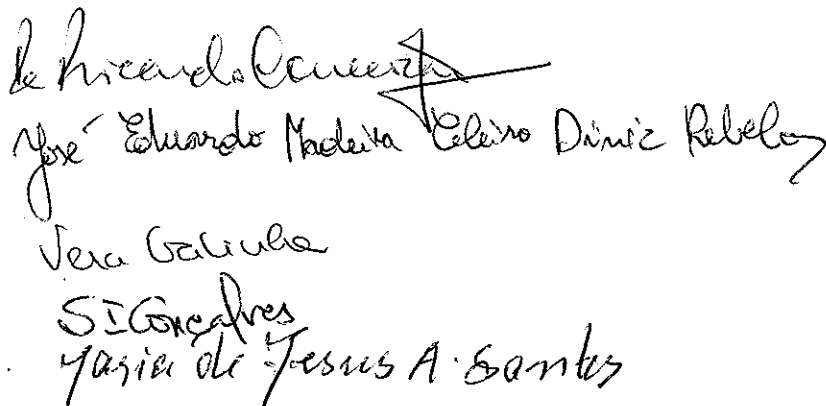 Pe Ricardo
José Eduardo Madeira Celeiro Diniz Rebelo
Vera Galinha
S I Gonçalves
Maria de Jesus A. Santos